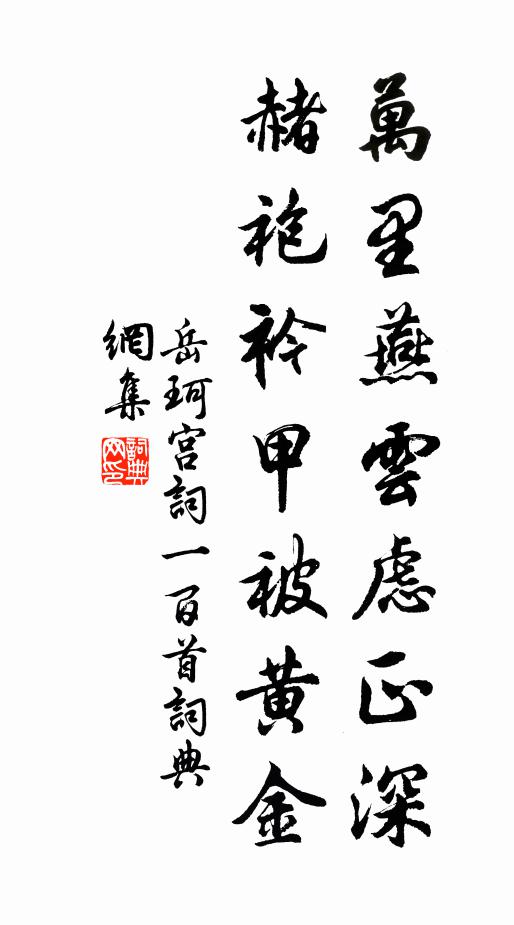 萬里燕雲慮正深
赭袍衿甲被黃金
岳珂宮詞一百首詞典
網集
詞典網印